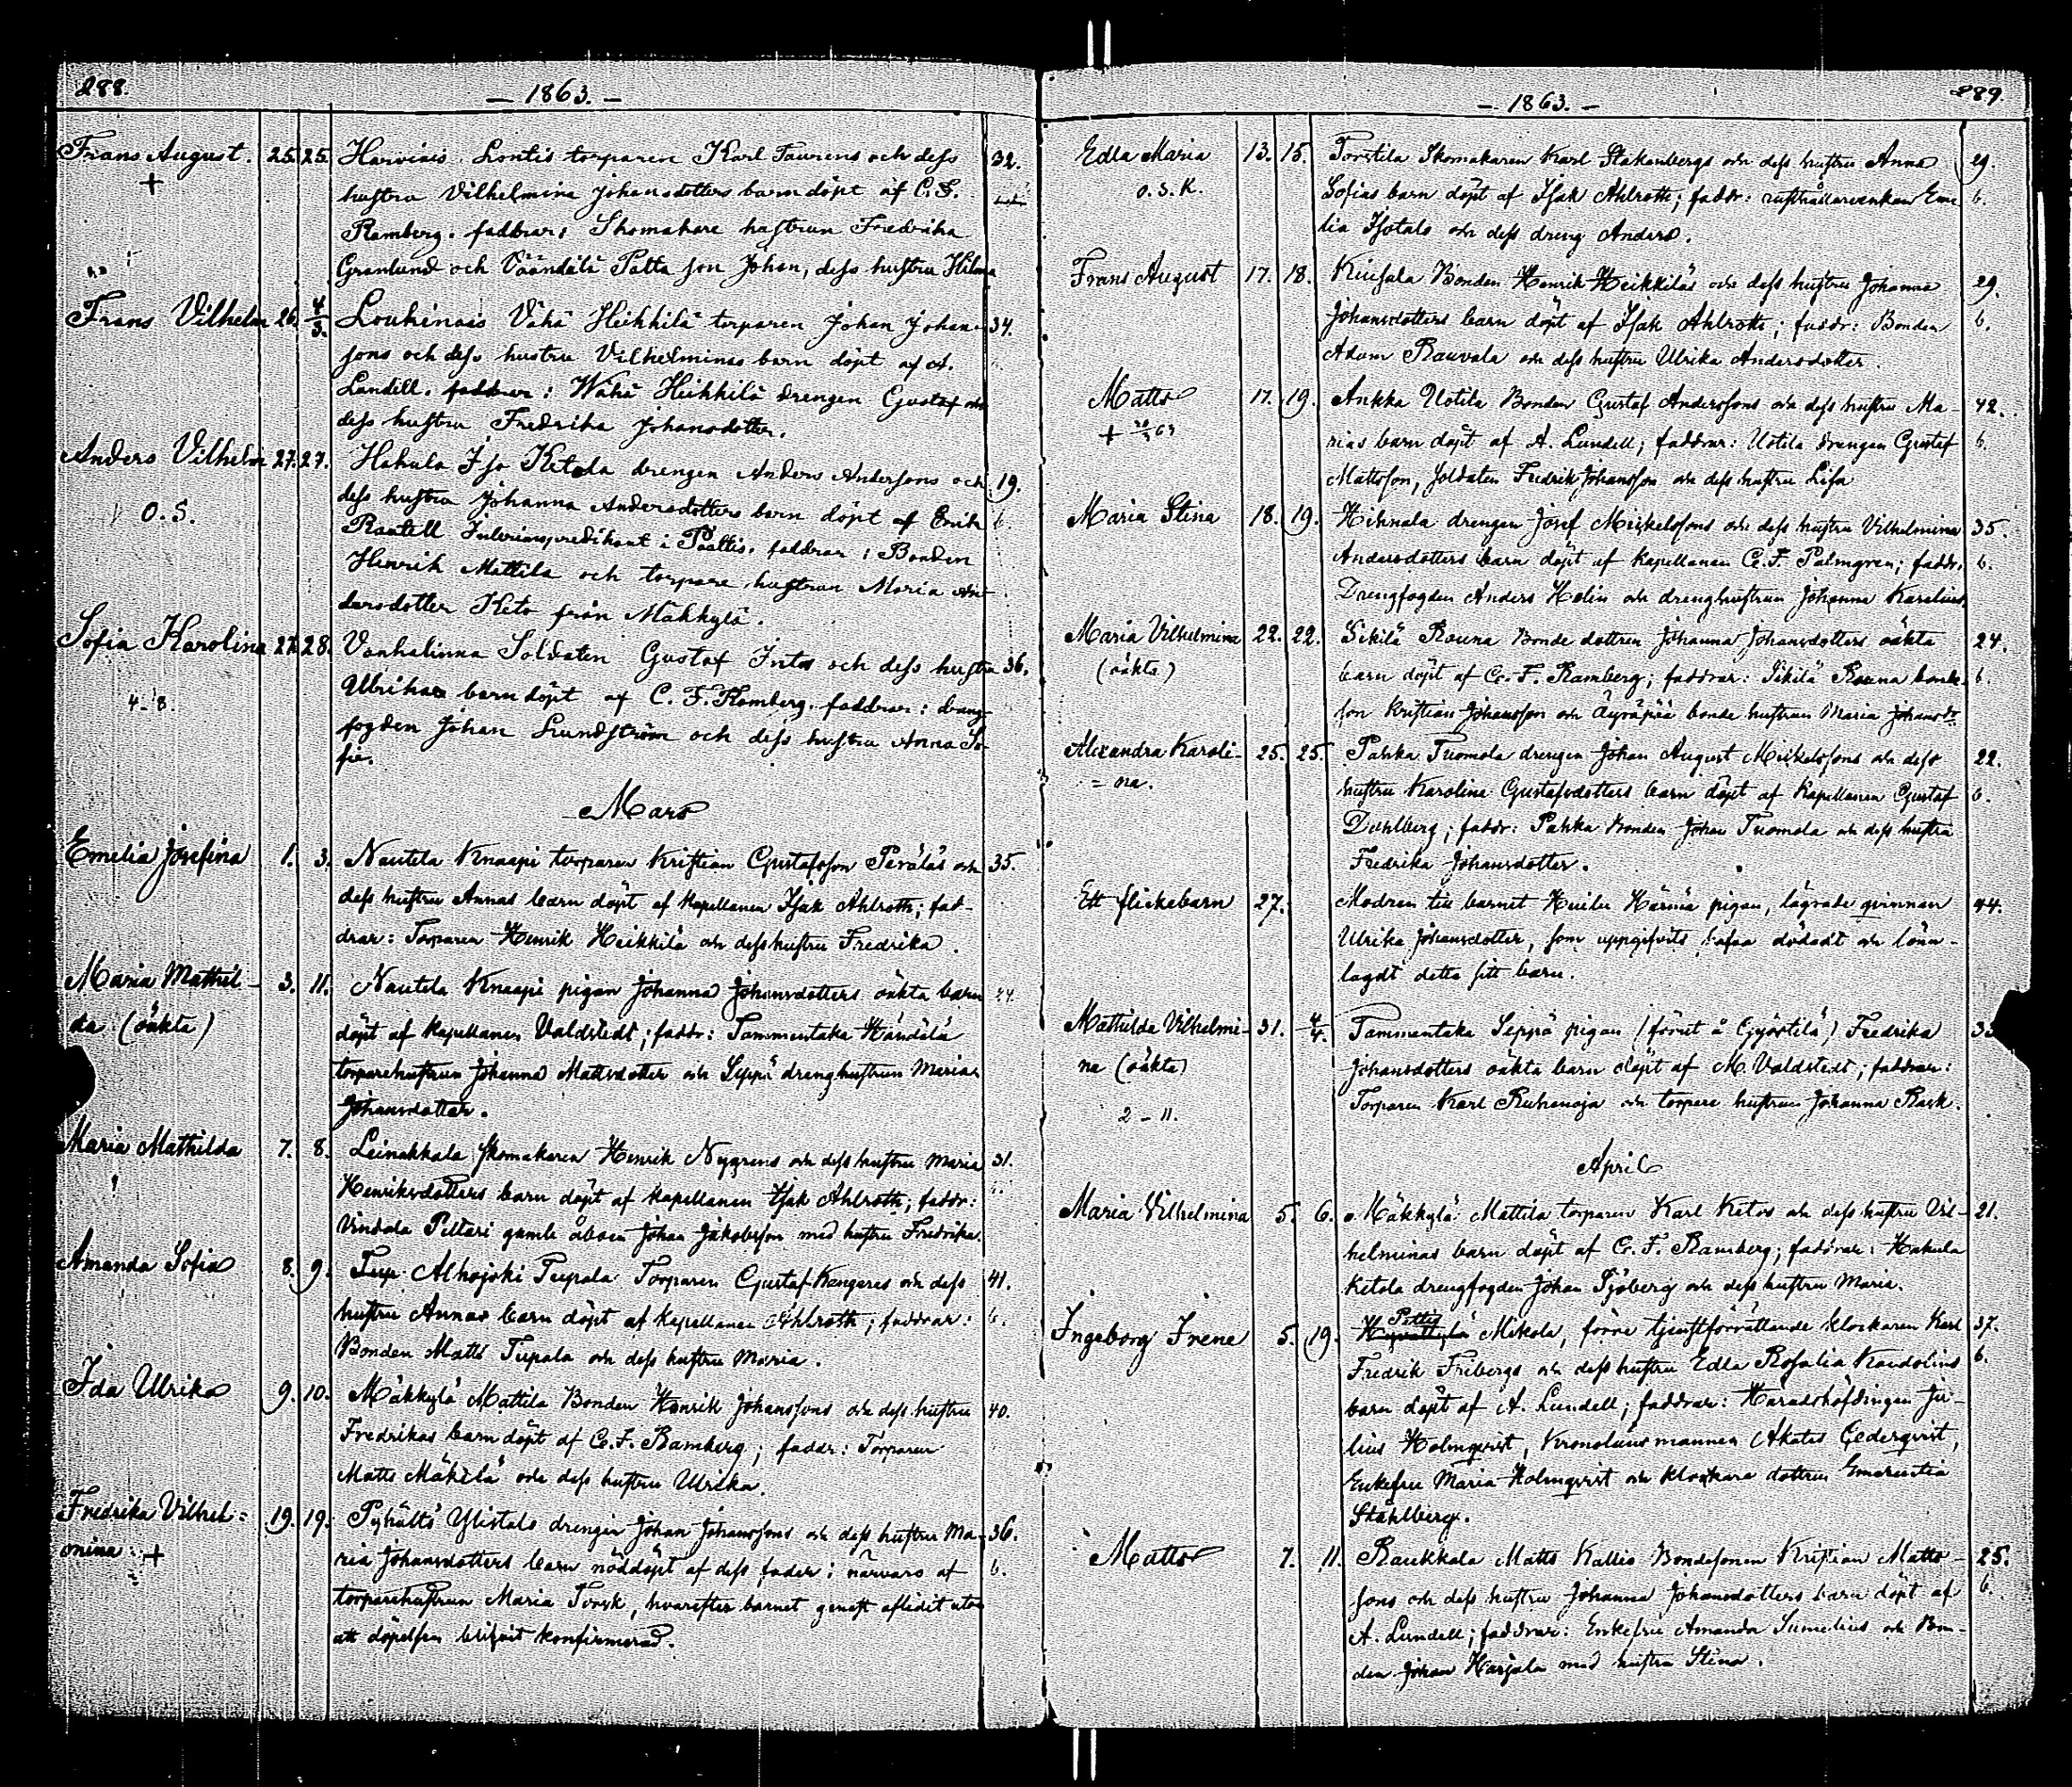 288.
— 1863. —
Frans August. 25. 25. Harviais Lontis torparen Karl Taurens och dess 32.
+ hustru Vilhelmina Johansdotters barn döpt af C. F.
Ramberg. faddrar: Skomakare hustrun Fredrika
Granlund och Väändälä Patta son Johan, dess hustru Hilma
Frans Vilhelm 26. 4/3. Loukinais Vähä Heikkilä torparen Johan Johans- 34.
sons och dess hustru Vilhelminas barn döpt af A.
Lundell. faddrar: Wähä Heikkilä drengen Gustaf och
dess hustru Fredrika Johansdotter.
Anders Vilhelm 27. 27. Hakula Iso Ketola drengen Anders Anderssons och 19.
dess hustru Johanna Andersdotters barn döpt af Erik 6.
O. S. Rantell Interimspredikant i Paattis. faddrar: Bonden
Henrik Mattila och torpare hustrun Maria An-
dersdotter Keto från Mäkkylä.
Sofia Karolina 27. 28. Vanhalinna Soldaten Gustaf Ints och dess hustru 36.
4-8. Ulrikas barn döpt af C. F. Ramberg. faddrar: dreng-
fogden Johan Lundström och dess hustru Anna So-
fia.
Mars
Emelia Josefina 1. 3. Nautela Knaapi torparen Kristian Gustafsson Peräläs och 35.
dess hustru Annas barn döpt af Kapellanen Isak Ahlroth; fad-
drar: Torparen Henrik Heikkilä och dess hustru Fredrika.
Maria Mathil- 3. 11. Nautela Knaapi pigan Johanna Johansdotters oäkta barn 24.
da (oäkta) döpt af Kapellanen Valdstedt; faddr: Tammentaka Händälä
torparehustrun Johanna Mattsdotter och Seppä drenghustrun Maria
Johansdotter.
Maria Mathilda 7. 8. Leinakkala Skomakaren Henrik Nygrens och dess hustru Maria 31.
Henriksdotters barn döpt af Kapellanen Isak Ahlroth; faddr: 6.
Vindala Peltari gamle åboen Johan Jakobsson med hustru Fredrika.
Amanda Sofia 8. 9. Tup Alhojoki Tupala Torparen Gustaf Kangares och dess 41.
hustru Annas barn döpt af Kapellanen Ahlroth; faddrar: 6.
Bonden Matts Tupala och dess hustru Maria.
Ida Ulrika 9. 10. Mäkkylä Mattila Bonden Henrik Johanssons och dess hustru 40.
Fredrikas barn döpt af C. F. Ramberg; faddr: Torparen
Matts Mäkilä och dess hustru Ulrika.
Fredrika Vilhel= 19. 19. Pyhältö Ylistalo drengen Johan Johanssons och dess hustru Ma- 36.
mina + ria Johansdotters barn nöddöpt af dess fader i närvaro af 6.
torparehustrun Maria Torsk, hvarefter barnet genast aflidit utan
att döpelsen blifvit konfirmerad.
289.
— 1863. —
Edla Maria 13. 15. Torstila Skomakaren Karl Stakenbergs och dess hustru Anna 29.
o. s. k. Sofias barn döpt af Isak Ahlroth; faddr: rusthållarenkan Eme 6.
lia Isotalo och dess dreng Anders.
Frans August 17. 18. Kiusala Bonden Henrik Heikkiläs och dess hustru Johanna 29.
Johansdotters barn döpt af Isak Ahlroth; faddr: Bonden 6.
Adam Rauvala och dess hustru Ulrika Andersdotter.
Matts 17. 19. Ankka Uotila Bonden Gustaf Anderssons och dess hustru Ma- 42.
+ rias barn döpt af A. Lundell; faddrar: Uotila drengen Gustaf 6.
Mattsson, soldaten Fredrik Johansson och dess hustru Lisa
Maria Stina 18. 19. Hihnala drengen Josef Michelssons och dess hustru Vilhelmina 35.
Andersdotters barn döpt af Kapellanen C. F. Palmgren; faddr: 6.
Drengfogden Anders Helin och drenghustrun Johanna Karelius.
Maria Vilhelmina 22. 22. Sikilä Rauna Bonde dottren Johanna Johansdotters oäkta 24.
(oäkta) barn döpt af C. F. Ramberg; faddrar: Sikilä Rauna bonde 6.
son Kristian Johansson och Äyräpää bonde hustrun Maria Johansdr.
Alexandra Karoli- 25. 25. Pahka Tuomola drengen Johan August Mickelssons och dess 22.
= na. hustru Karolina Gustafsdotters barn döpt af Kapellanen Gustaf 6.
Dahlberg; faddr: Pahka Bonden Johan Tuomola och dess hustru
Fredrika Johansdotter.
Ett flickebarn 27. Modren till barnet Huilu Härmä pigan, lägrade qvinnan 44.
Ulrika Johansdotter, som uppgifvits hafva dödadt och lönn-
lagdt detta sitt barn.
Mathilda Vilhelmi- 31. 4/4. Tammentaka Seppä pigan (förut å Györtilä) Fredrika
na (oäkta) Johansdotters oäkta barn döpt af M. Valdstedt; faddrar:
2 – 11. Torparen Karl Ruhanoja och torpare hustrun Johanna Rask.
April
Maria Vilhelmina 5. 6. Mäkkylä Mattila torparen Karl Ketos och dess hustru Vil- 21.
helminas barn döpt af C. F. Ramberg; faddrar: Hakula
Ketola drengfogden Johan Sjöberg och dess hustru Maria.
Ingeborg Irene 5. 19. Pettis Mikola, förre tjenstförrättande klockaren Karl 37.
Fredrik Fribergs och dess hustru Edla Rosalia Kandolins 6.
barn döpt af A. Lundell; faddrar: Häradshöfdingen Ju-
lius Holmqvist, Kronolänsmannen Akates Cederqvist,
Enkefru Maria Holmqvist och klockare dottren Emerentia
Ståhlberg.
Matts 7. 11. Raukkala Matts Kallio Bondesonen Kristian Matts- 25.
sons och dess hustru Johanna Johansdotters barn döpt af 6.
A. Lundell; faddrar: Enkefru Amanda Sumelius och Bon-
den Johan Harjola med hustru Stina.